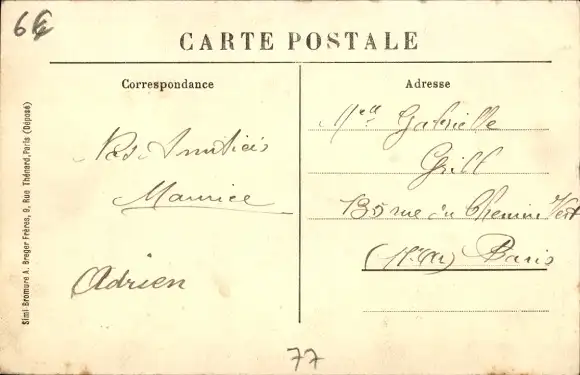 6€
CARTE POSTALE
Correspondance
Adresse
Mell Gabrielle
Grill
135 rue du Chemin Vert
Paris
Maurice
Adrien
Simi-Bromure A. Breger Frères, 9, Rue Thénard, Paris (Déposé)
77